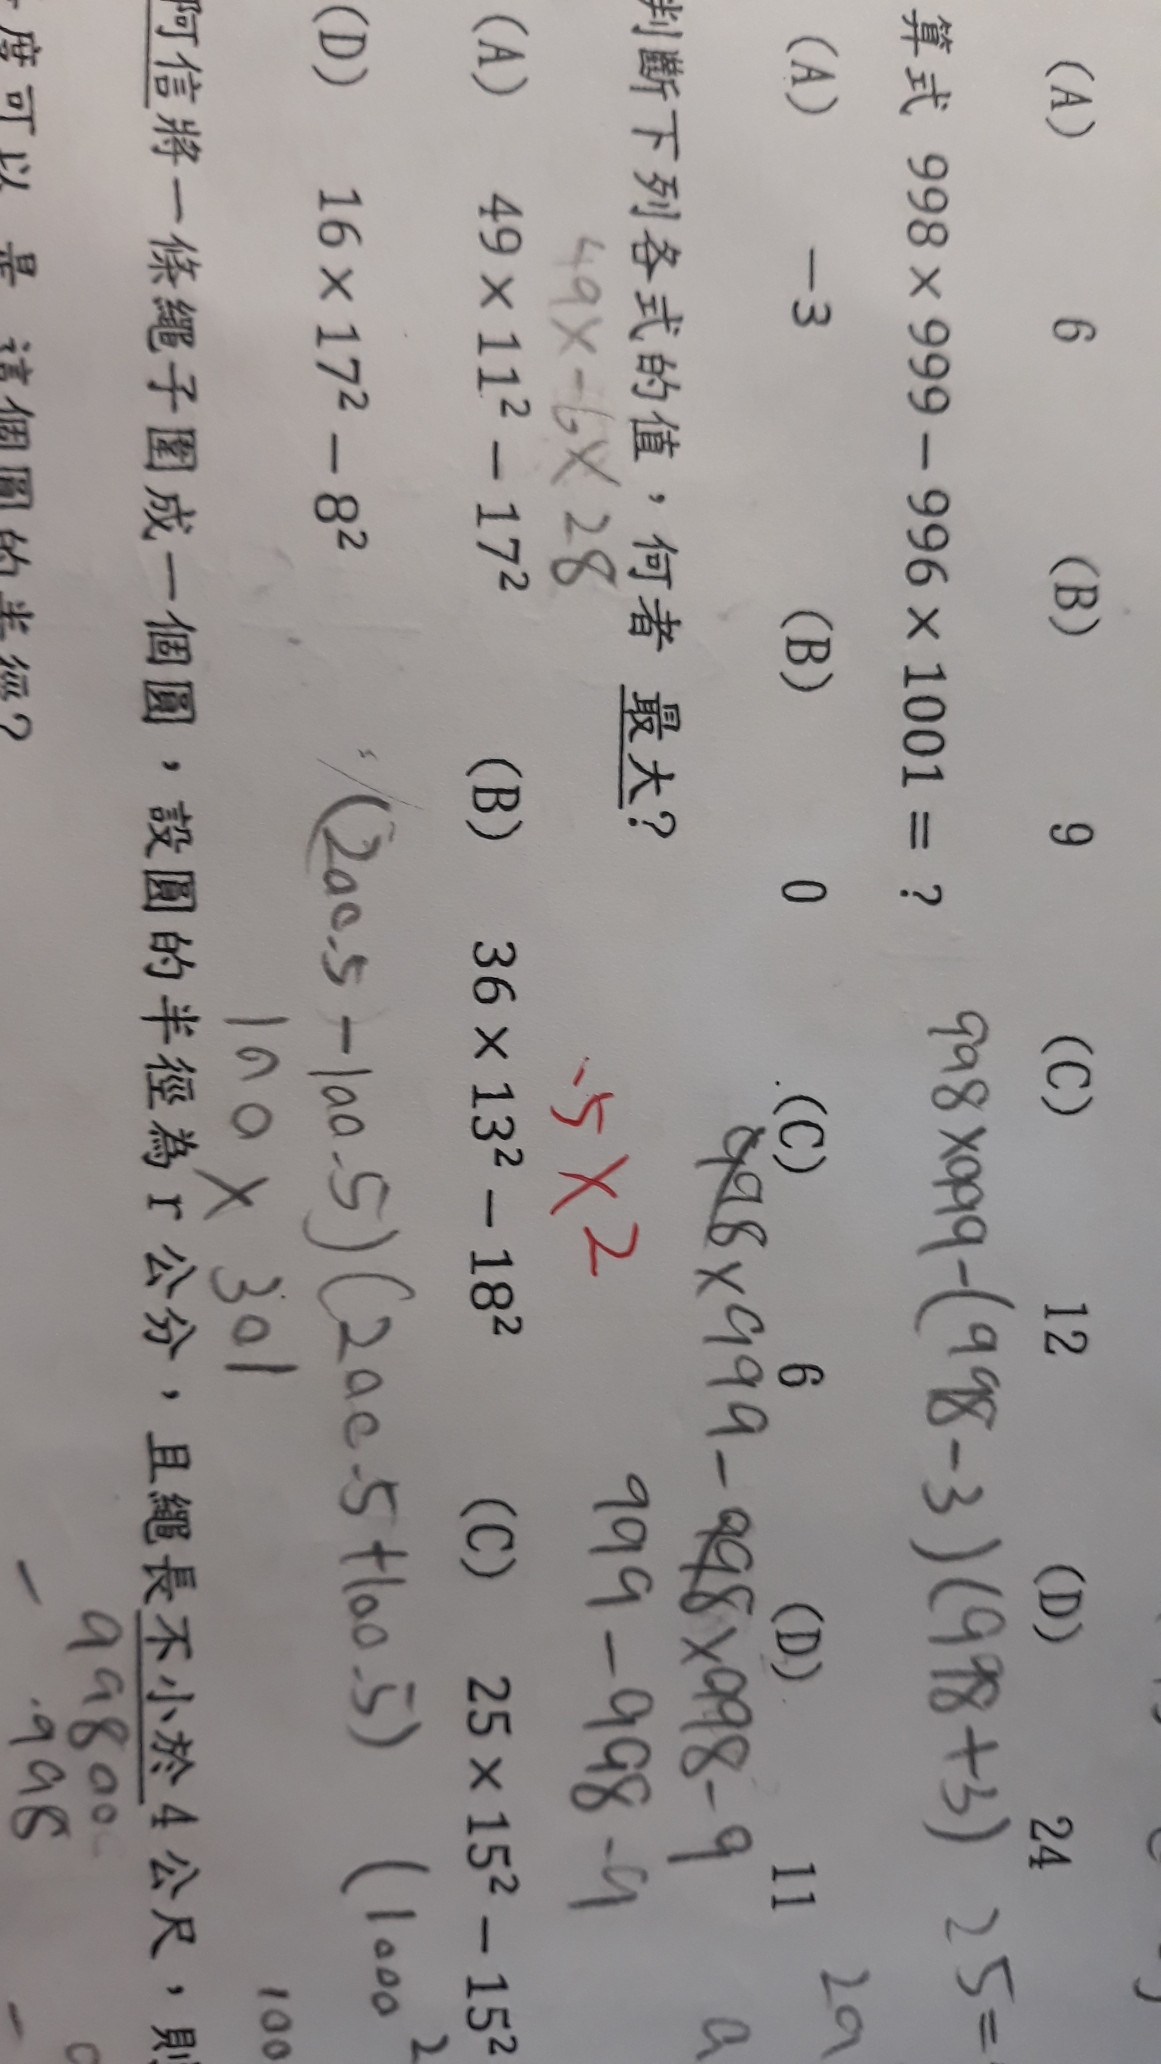 (A) 6 (B) 9 (C) 12 (D) 24
算式 998×999－996×1001＝？
998×999-(998-3)(998+3) 25=
(A) －3 (B) 0 (C) 6 (D) 11
998×999-998×998-9
判斷下列各式的值，何者 最大？
999-998-9
49×-6×28
-5×2
(A) 49×11²－17² (B) 36×13²－18² (C) 25×15²－15²
(D) 16×17²－8²
(200.5-100.5)(200.5+100.5) (1000²
100×301
100
阿信將一條繩子圍成一個圓，設圓的半徑為 r 公分，且繩長不小於 4 公尺，則
99800
- 998
度可以 是 這個圓的半徑？